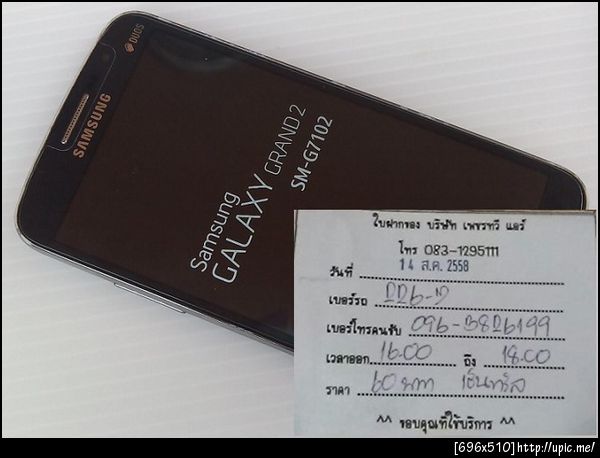 DUOS
SAMSUNG
Samsung
GALAXY GRAND 2
SM-G7102
ใบฝากของ บริษัท เพชรทวี แอร์
โทร 083-1295111
วันที่ 14 ส.ค. 2558
เบอร์รถ 226-2
เบอร์โทรคนขับ 096-3826199
เวลาออก 16.00 ถึง 18.00
ราคา 60 บาท เซ็นทรัล
^^ ขอบคุณที่ใช้บริการ ^^
[696x510]http://upic.me/